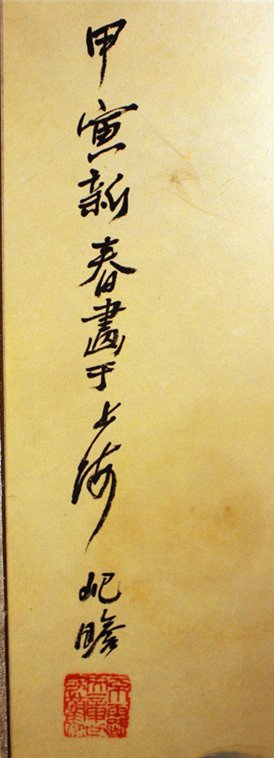 甲寅新春畫于上海
屺瞻